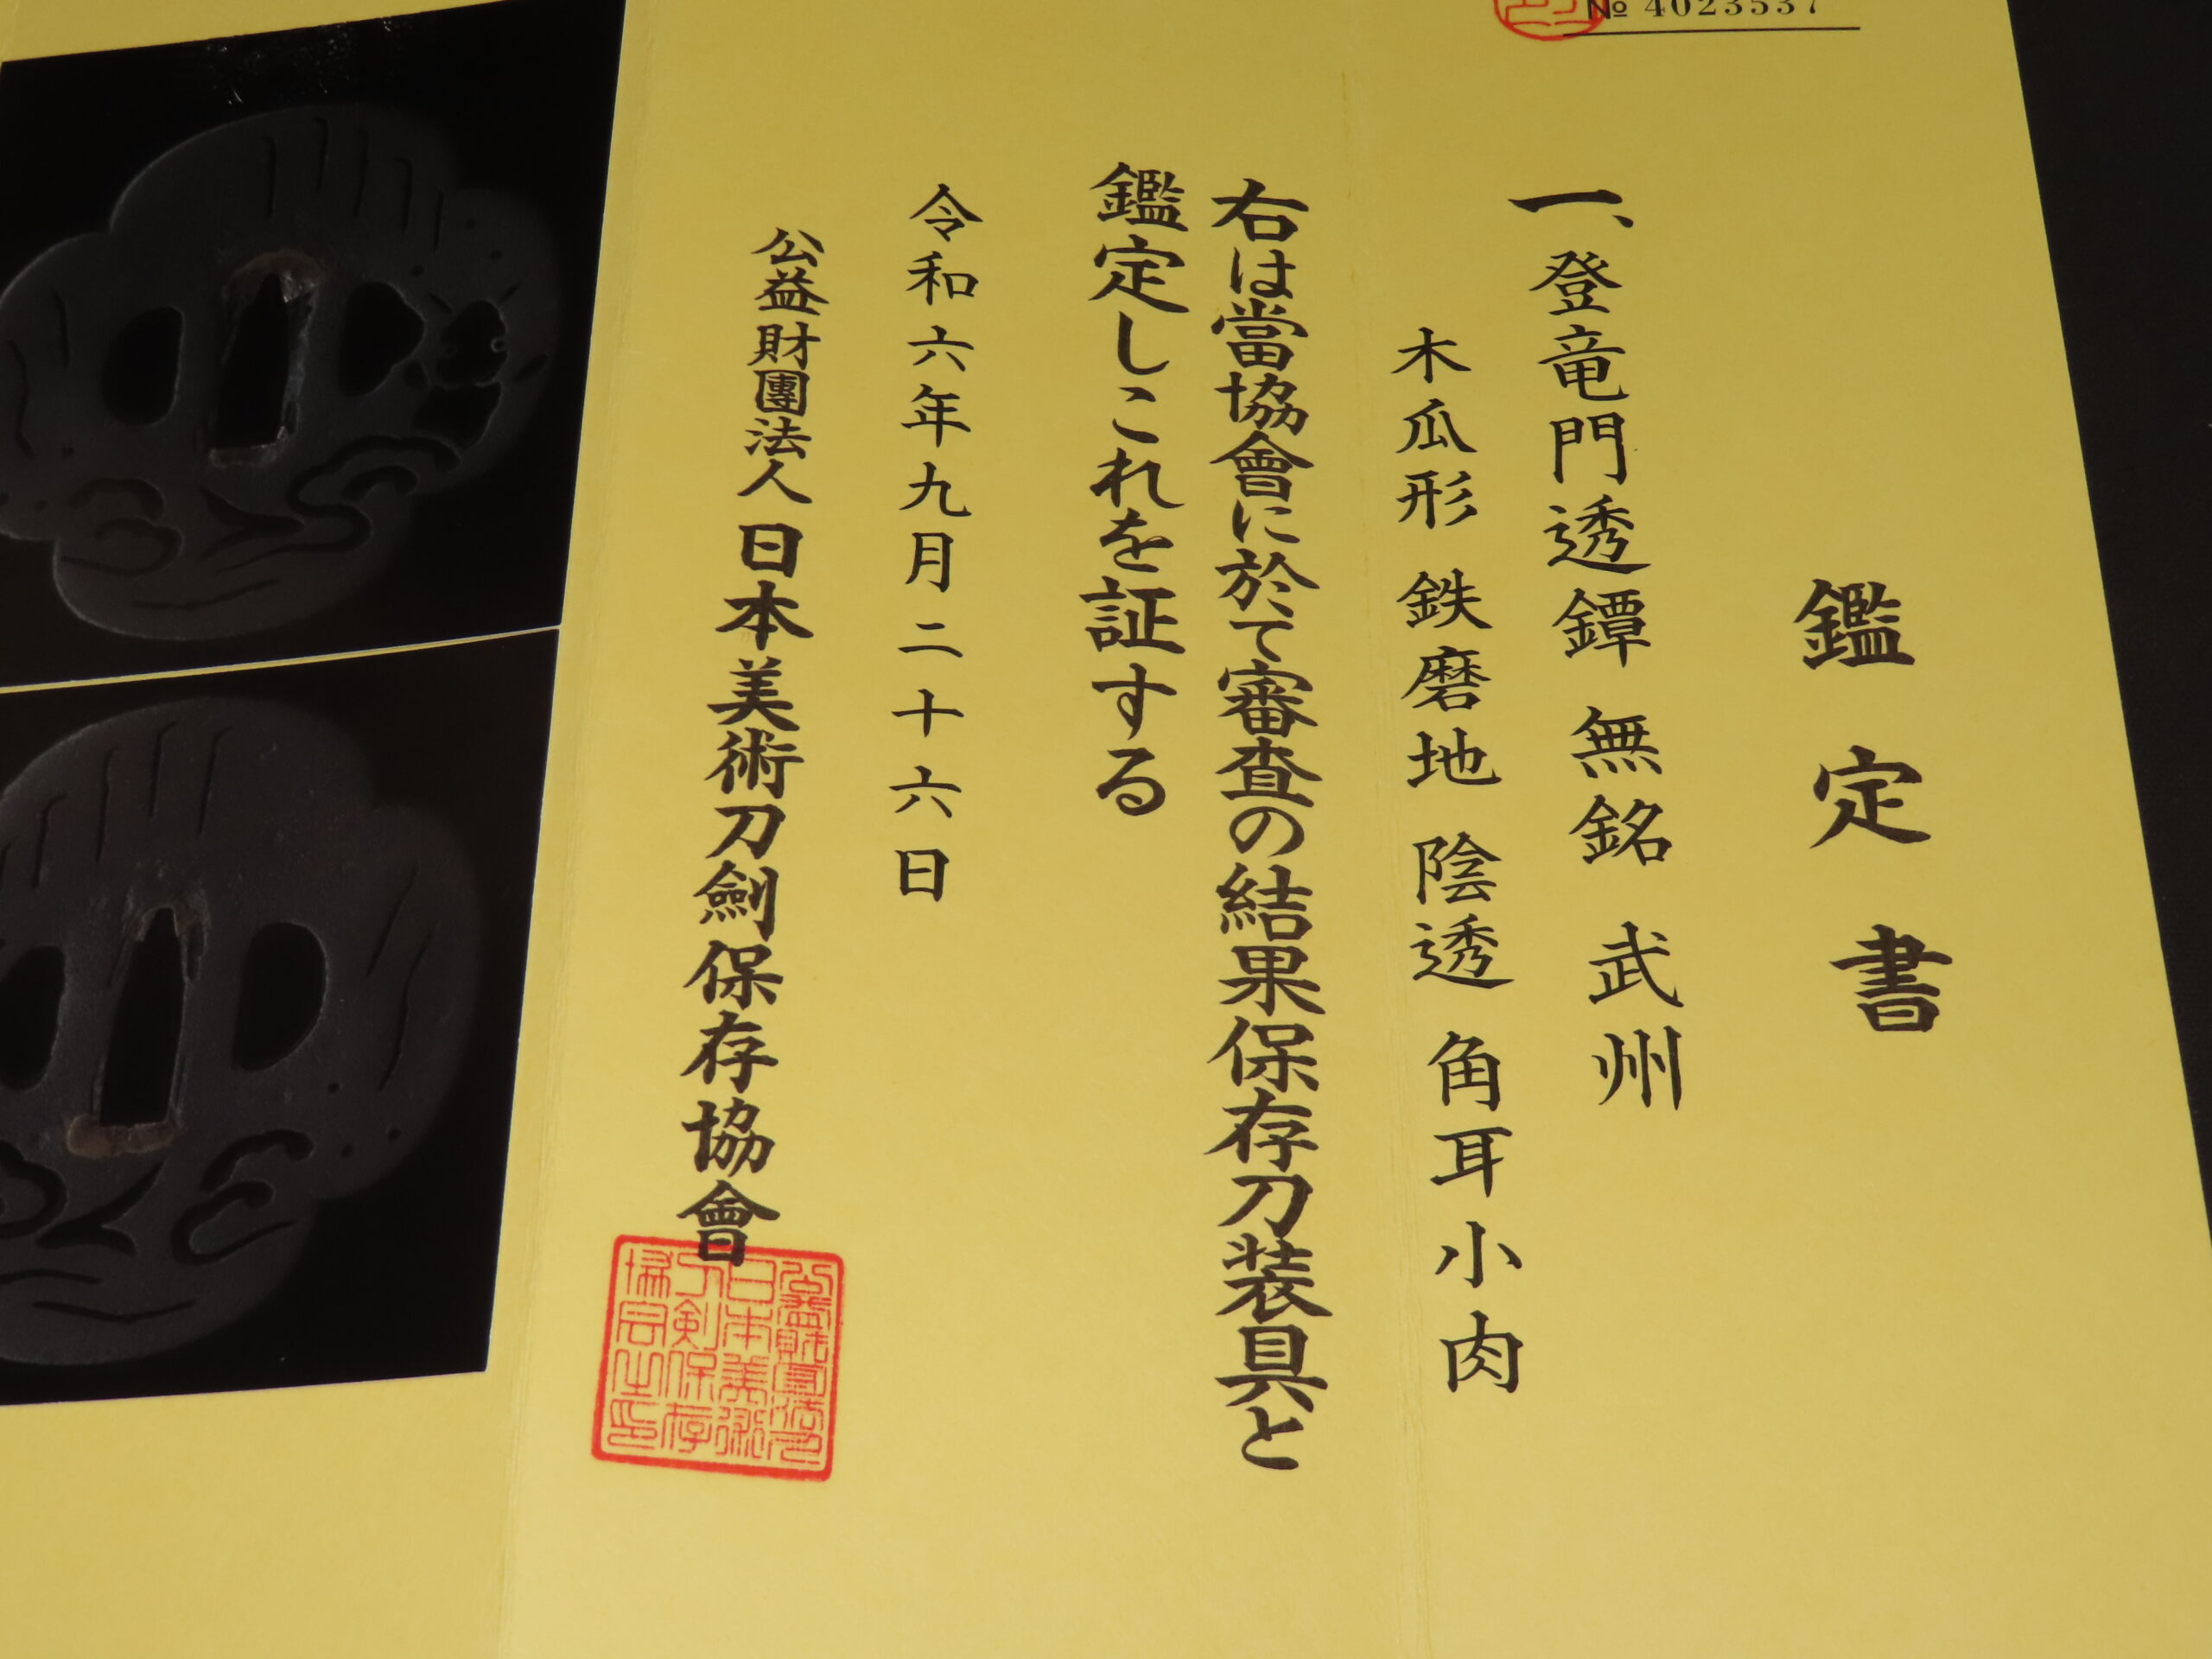 № 4023537
鑑定書
一、登竜門透鐔 無銘 武州
木瓜形 鉄磨地 陰透 角耳小肉
右は當協會に於て審査の結果保存刀装具と
鑑定しこれを証する
令和六年九月二十六日
公益財團法人 日本美術刀劍保存協會
公益財団法人
日本美術
刀剣保存
協会之印